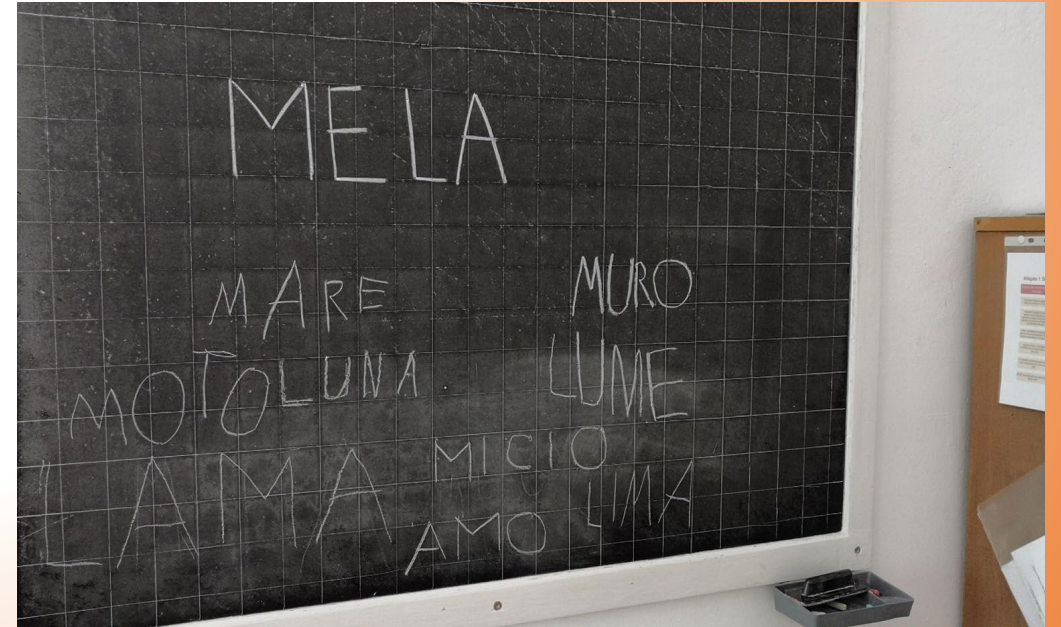 MELA
MARE
MURO
MOTO
LUNA
LUME
LAMA
MICIO
LIMA
AMO